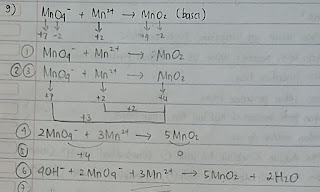 9) MnO4⁻ + Mn²⁺ → MnO2 (basa)
+7 -2 +2 +4 -2
① MnO4⁻ + Mn²⁺ → MnO2
②③ MnO4⁻ + Mn²⁺ → MnO2
+7 +2 +4
+2
+3
④ 2MnO4⁻ + 3Mn²⁺ → 5MnO2
⑤ +4 0
⑥ 4OH⁻ + 2MnO4⁻ + 3Mn²⁺ → 5MnO2 + 2H2O
⑦